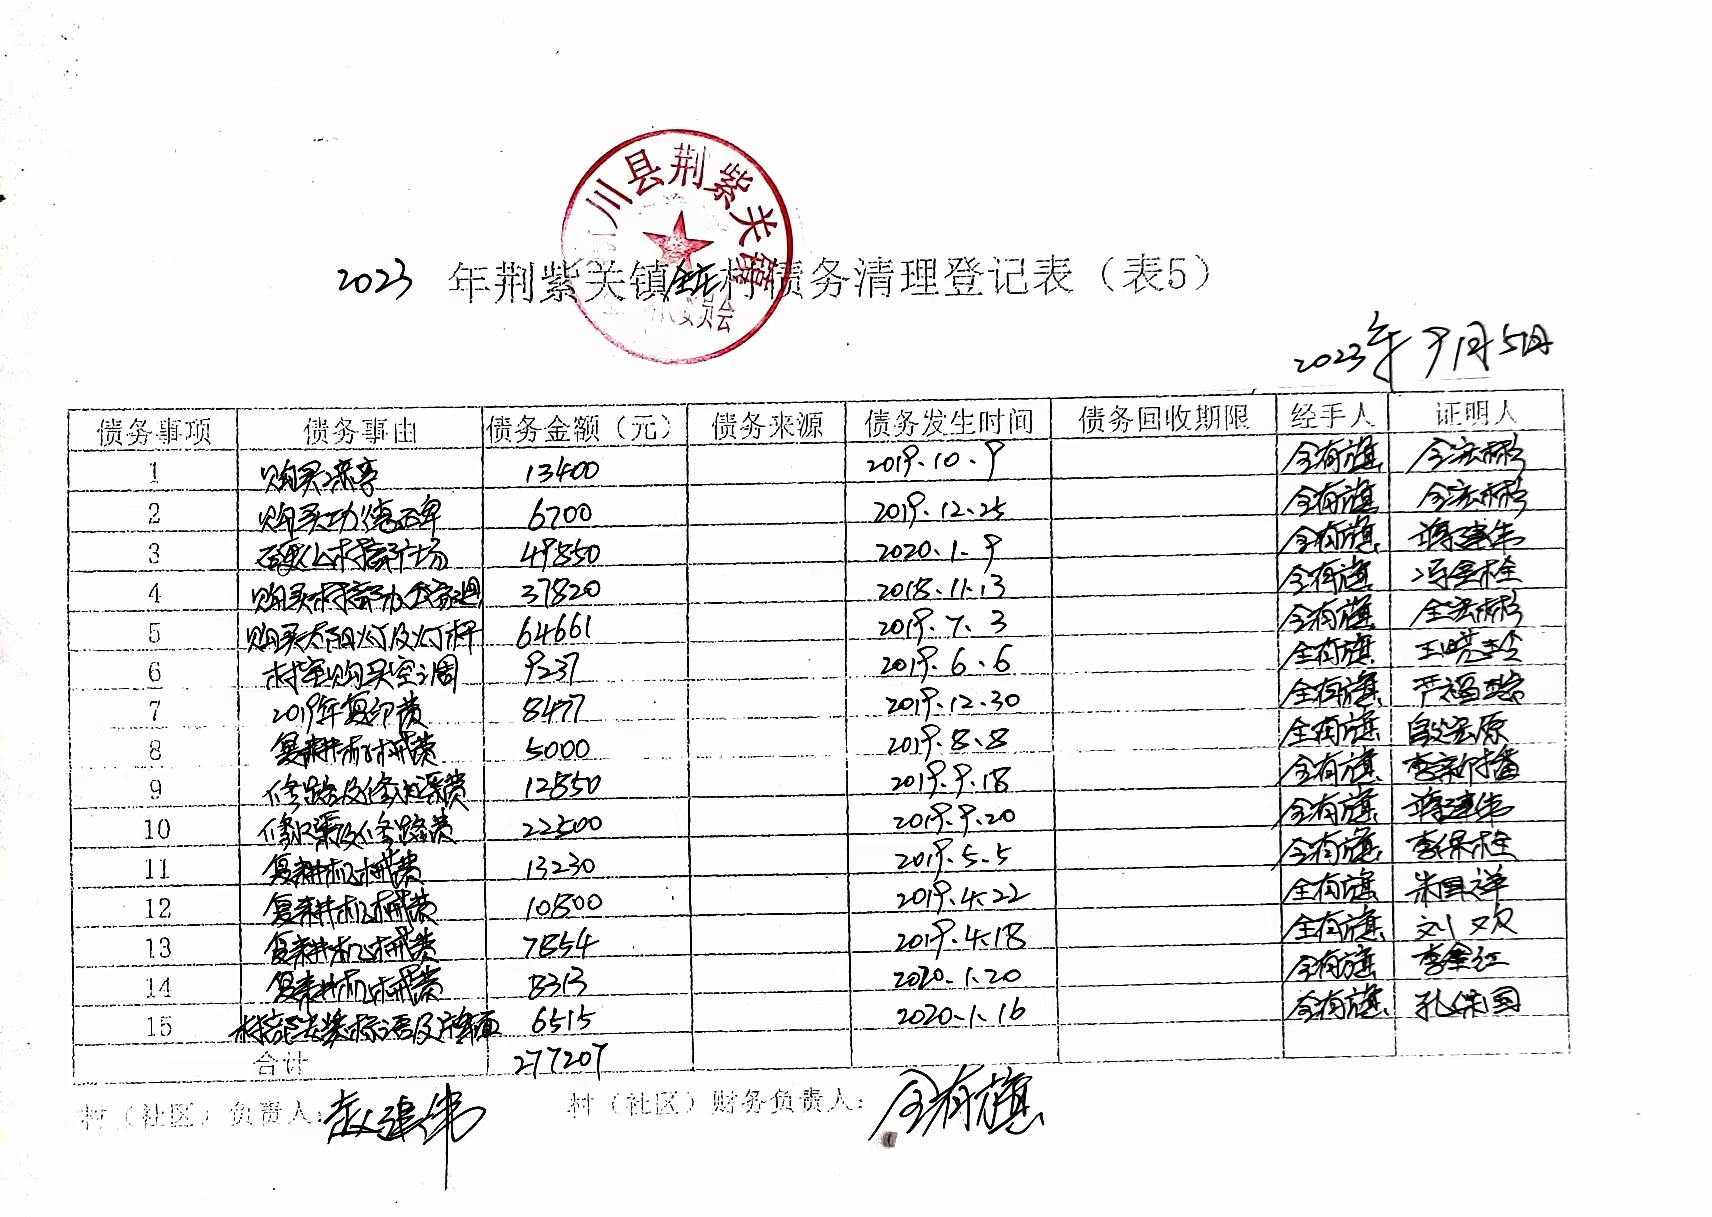 川县荆紫关镇
员会
2023 年荆紫关镇全庄村债务清理登记表（表5）
2023年9月5日
债务事项 债务事由 债务金额（元） 债务来源 债务发生时间 债务回收期限 经手人 证明人
1 购买凉亭 13400 2019.10.9 全有旗 全法彬
2 购买功德碑 6700 2019.12.25 全有旗 全法彬
3 硬化村部广场 49850 2020.1.9 全有旗 建伟
4 购买村部办公家具 37820 2018.11.13 全有旗 冯金栓
5 购买太阳灯及灯杆 64661 2019.7.3 全有旗 全法彬
6 村室购买空调 9237 2019.6.6 全有旗 王晓玲
7 2019年复印费 8477 2019.12.30 全有旗 严
8 复耕机械费 5000 2019.8.8 全有旗
9 修路及修水渠费 12850 2019.9.18 全有旗 李新
10 修水渠及修路费 22500 2019.9.20 全有旗 建伟
11 复耕机械费 13230 2019.5.5 全有旗 李保栓
12 复耕机械费 10800 2019.4.22 全有旗 朱国祥
13 复耕机械费 7854 2019.4.18 全有旗 刘欢
14 复耕机械费 8313 2020.1.20 全有旗 李金红
15 村部安装标语及版面 6515 2020.1.16 全有旗 孔保国
合计 277207
村（社区）负责人：赵建伟 村（社区）财务负责人：全有旗